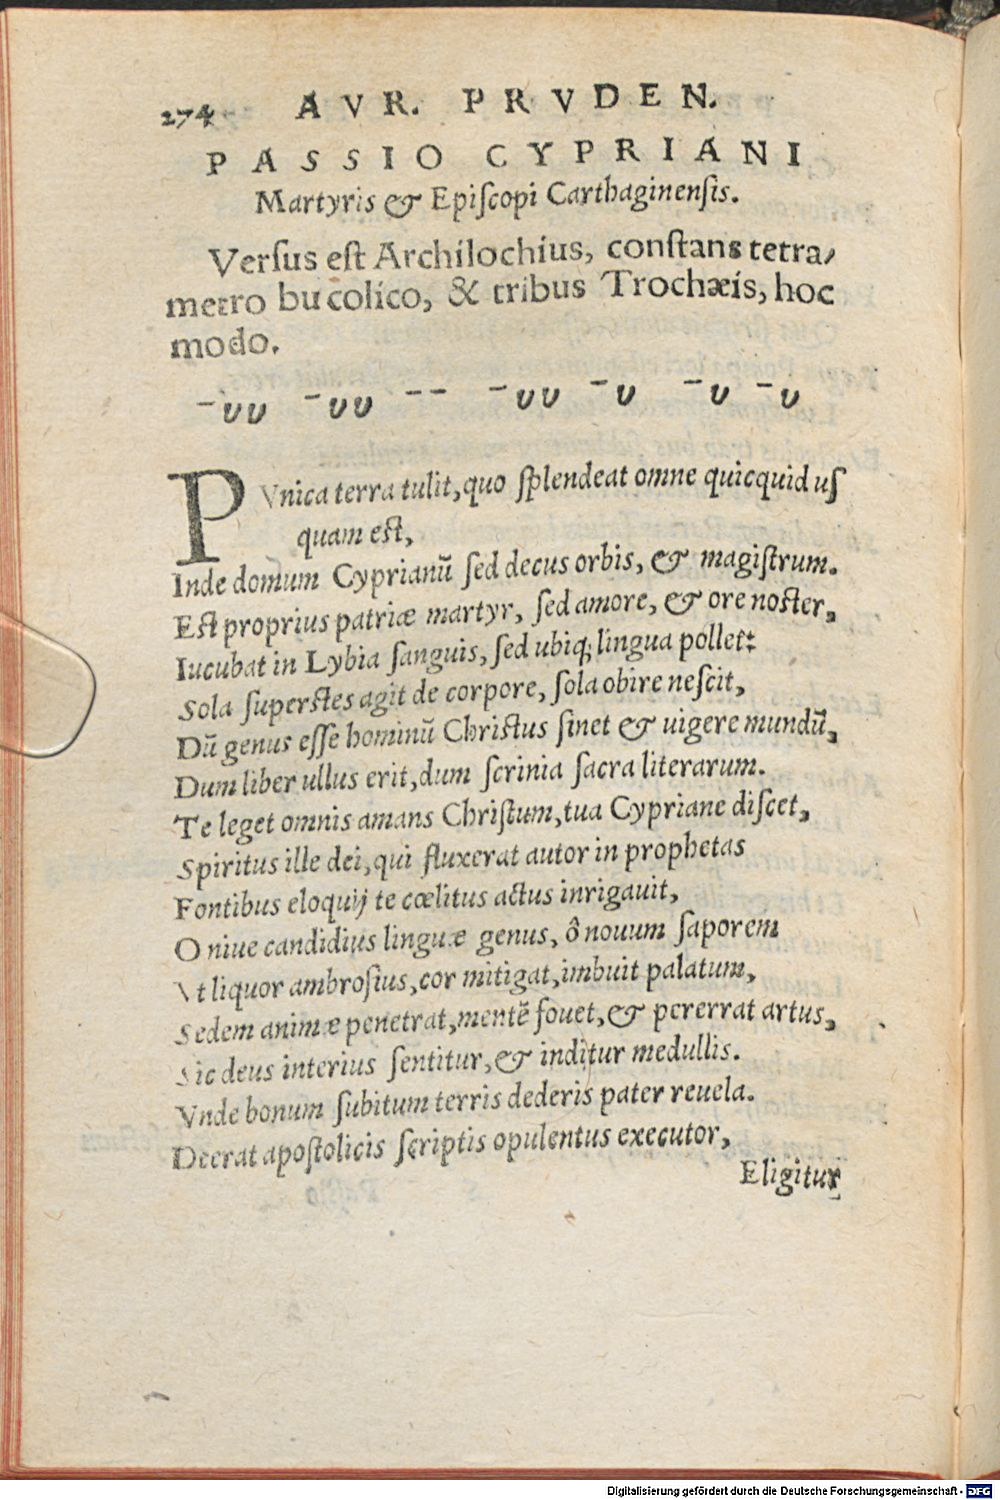 274 AVR. PRVDEN.
PASSIO CYPRIANI
Martyris & Epiſcopi Carthaginenſis.
Verſus eſt Archilochius, conſtans tetra/
metro bucolico, & tribus Trochæis, hoc
modo.
PVnica terra tulit, quo ſplendeat omne quicquid uſ
quam eſt,
Inde domum Cyprianũ ſed decus orbis, & magiſtrum.
Eſt proprius patriæ martyr, ſed amore, & ore noſter,
Iucubat in Lybia ſanguis, ſed ubiq; lingua pollet:
Sola ſuperſtes agit de corpore, ſola obire neſcit,
Dũ genus eſſe hominũ Chriſtus ſinet & uigere mundũ,
Dum liber ullus erit, dum ſcrinia ſacra literarum.
Te leget omnis amans Chriſtum, tua Cypriane diſcet,
Spiritus ille dei, qui fluxerat autor in prophetas
Fontibus eloquij te cœlitus actus inrigauit,
O niue candidius linguæ genus, ô nouum ſaporem
Vt liquor ambroſius, cor mitigat, imbuit palatum,
Sedem animæ penetrat, mentẽ fouet, & pererrat artus,
Sic deus interius ſentitur, & inditur medullis.
Vnde bonum ſubitum terris dederis pater reuela.
Deerat apoſtolicis ſcriptis opulentus executor,
Eligitur
Digitalisierung gefördert durch die Deutsche Forschungsgemeinschaft - DFG